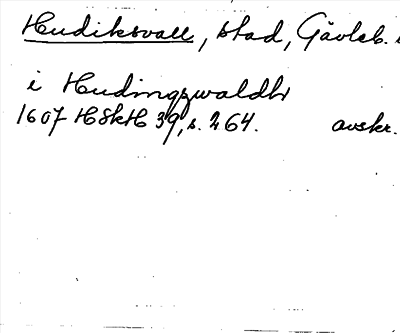 Hudiksvall, stad, Gävleb.
i Hudingzwaldh
1607 HSkH 39, s. 264. avskr.